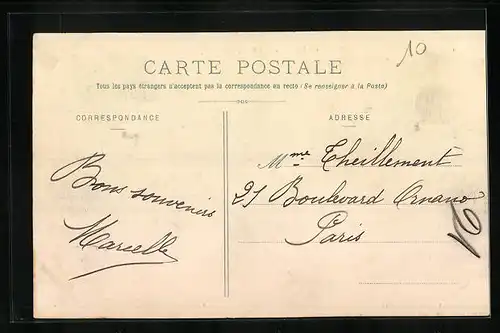 10
CARTE POSTALE
Tous les pays étrangers n'acceptent pas la correspondance au recto (Se renseigner à la Poste)
CORRESPONDANCE
Bons souvenirs
Marcelle
ADRESSE
Mme Theillement
21 Boulevard Ornano
Paris